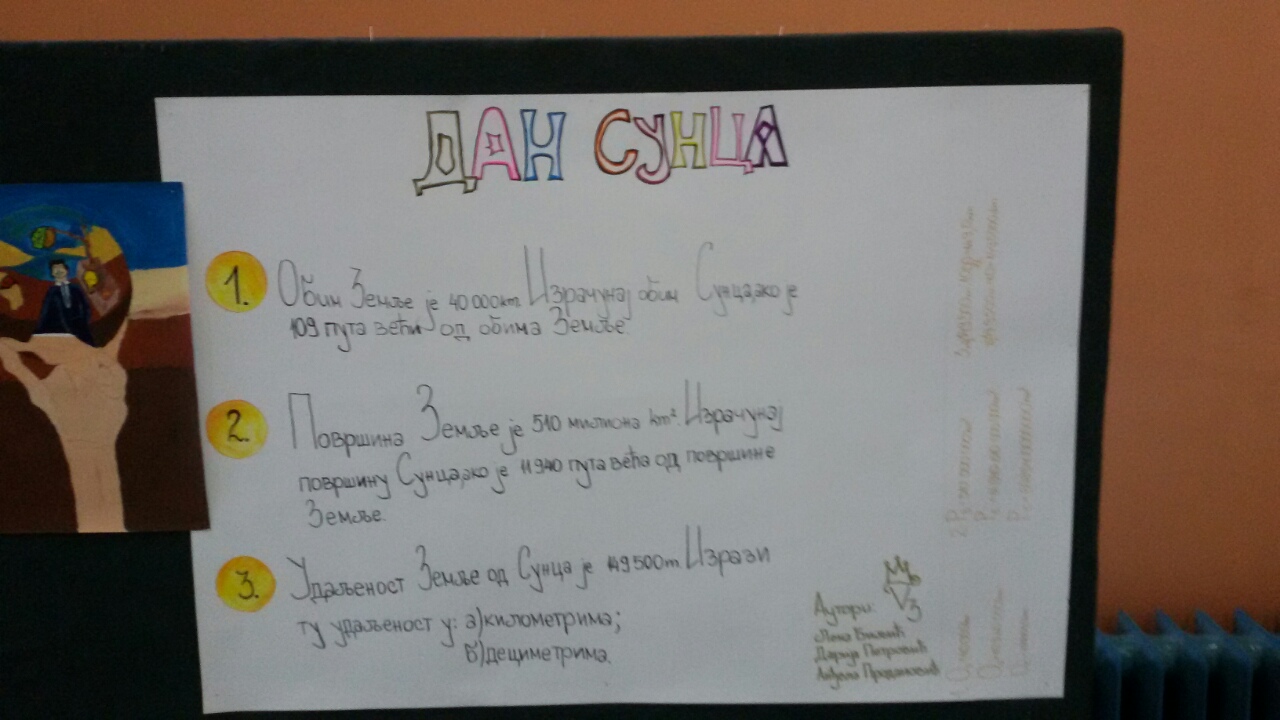 ДАН СУНЦА
1. Обим Земље је 40 000km. Израчунај обим Сунца, ако је
109 пута већи од обима Земље
2. Површина Земље је 510 милиона km². Израчунај
површину Сунца, ако је 11 940 пута већа од површине
Земље.
3. Удаљеност Земље од Сунца је 149 500m. Изрази
ту удаљеност у: а) километрима;
б) дециметрима.
V3
Аутори:
Лена
Дарија Петровић
Анђела Продановић